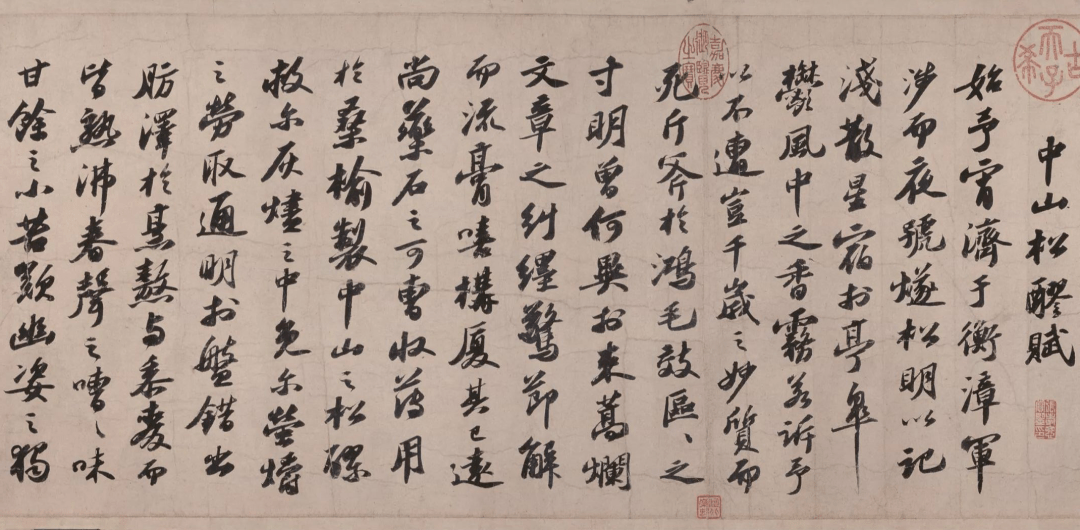 中山松醪賦
始予宵濟于衡漳軍
涉而夜號燧松明以記
淺散星宿於亭皋
鬱風中之香霧若訴予
以不遭豈千歲之妙質而
死斤斧於鴻毛效區〻之
寸明曾何異於束蒿爛
文章之糾纆驚節解
而流膏嘻構廈其已遠
尚藥石之可曹收薄用
於桑榆製中山之松醪
救尒灰燼之中免尒螢爝
之勞取通明於盤錯出
肪澤於烹熬與黍麥而
皆熟沸舂聲之嘈〻味
甘餘之小苦歎幽姿之獨
古希天子
嘉慶御覽之寶